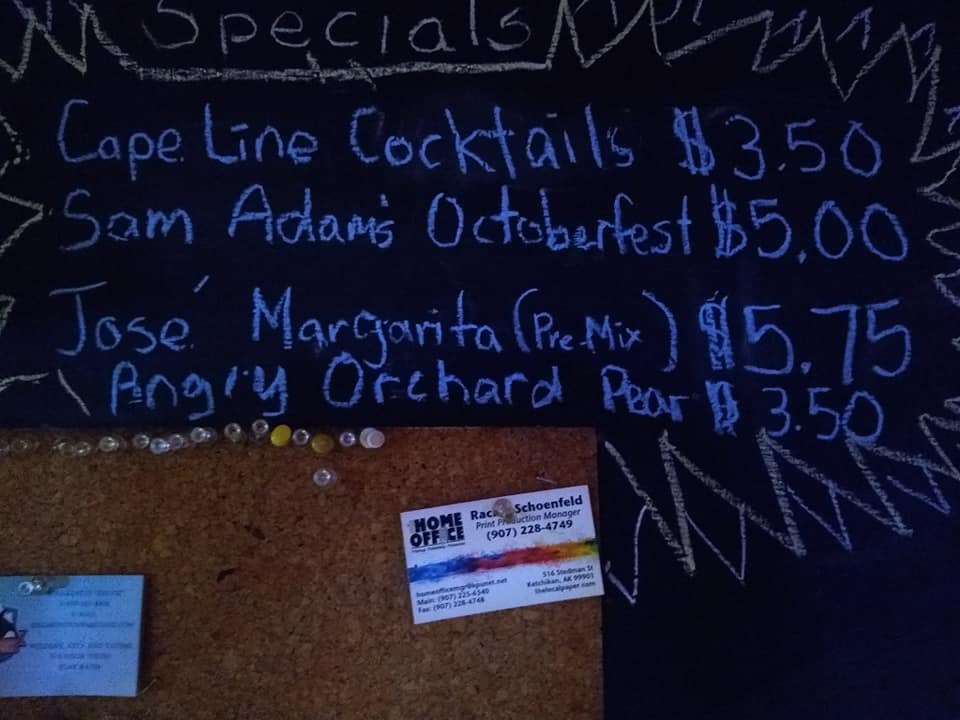 Specials
Cape Line Cocktails $3.50
Sam Adam's Octoberfest $5.00
José Margarita (Pre Mix) $5.75
Angry Orchard Pear $3.50
HOME OFFICE
Schoenfeld
Print Production Manager
(907) 228-4749
homeofficemgr@kpunet.net
Main: (907) 225-6540
Fax: (907) 228-4748
516 Stedman St
Ketchikan, AK 99901
thelocalpaper.com